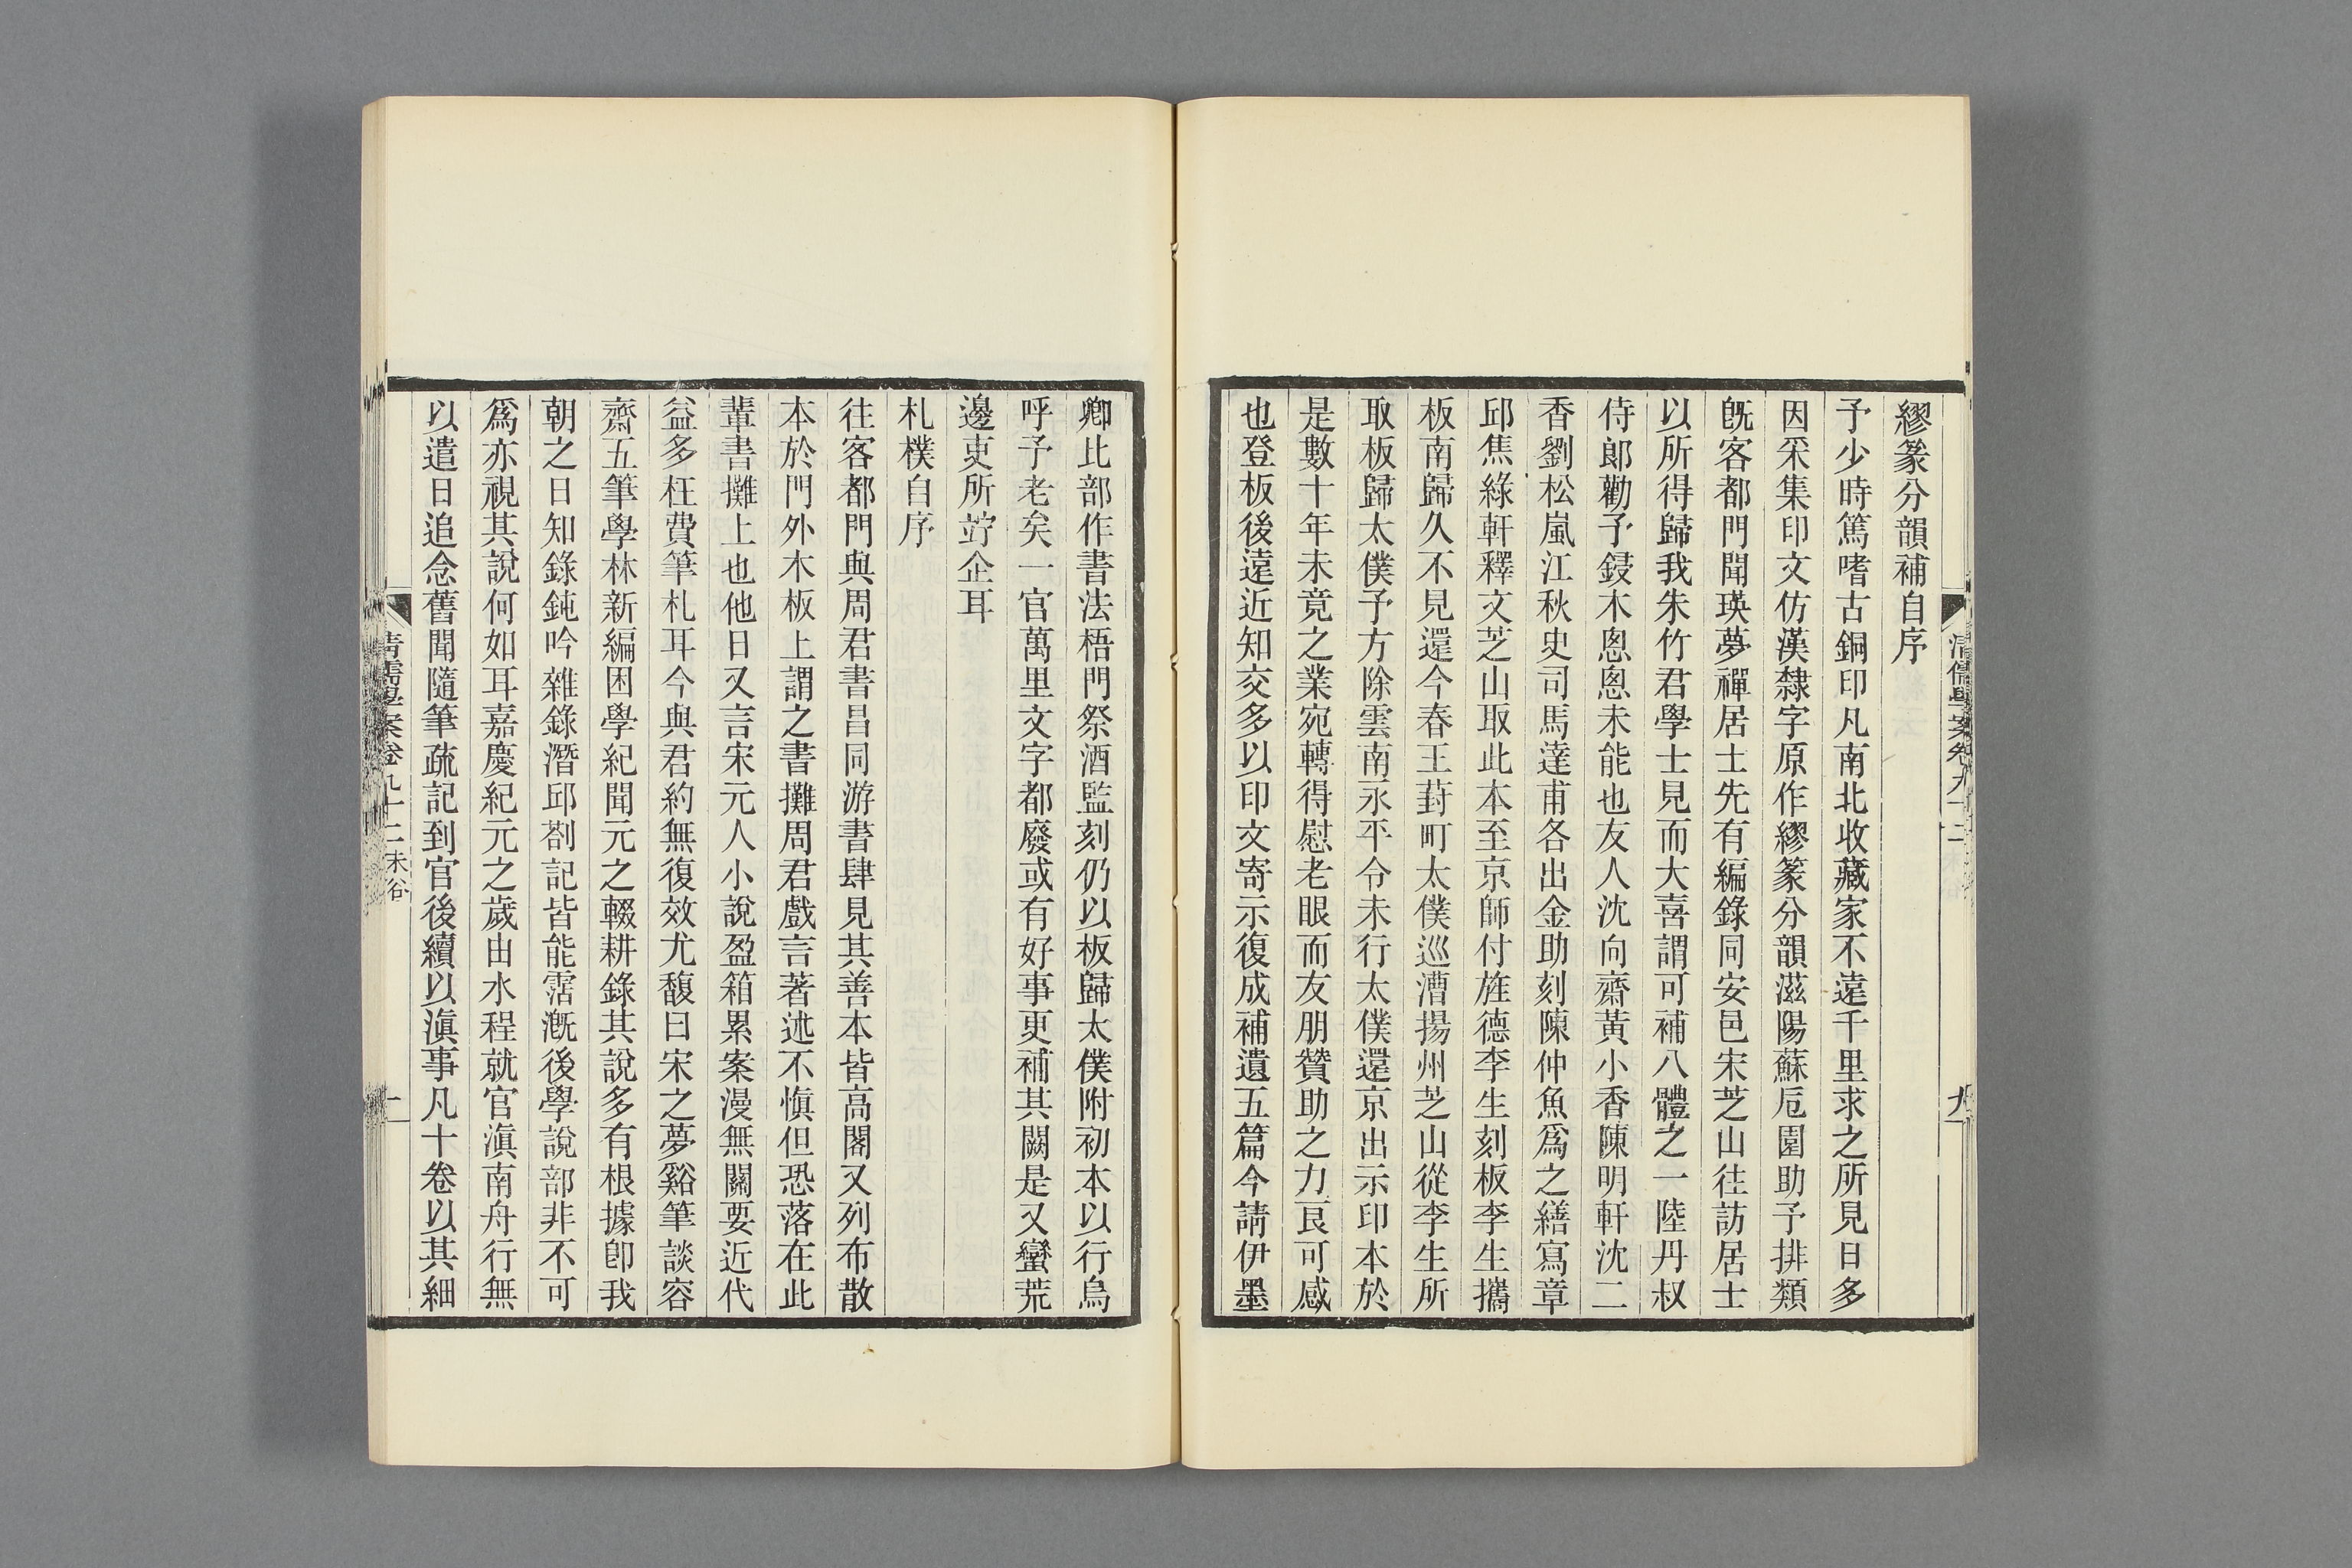 繆篆分韻補自序
予少時篤嗜古銅印凡南北收藏家不遠千里求之所見日多
因采集印文仿漢隸字原作繆篆分韻滋陽蘇卮園助予排類
旣客都門聞瑛夢禪居士先有編錄同安邑宋芝山往訪居士
以所得歸我朱竹君學士見而大喜謂可補八體之一陸丹叔
侍郞勸予鋟木悤悤未能也友人沈向齋黃小香陳明軒沈二
香劉松嵐江秋史司馬達甫各出金助刻陳仲魚爲之繕寫章
邱焦綠軒釋文芝山取此本至京師付旌德李生刻板李生攜
板南歸久不見還今春王葑町太僕巡漕揚州芝山從李生所
取板歸太僕予方除雲南永平令未行太僕還京出示印本於
是數十年未竟之業宛轉得慰老眼而友朋贊助之力良可感
也登板後遠近知交多以印文寄示復成補遺五篇今請伊墨
清儒學案卷九十二
九
卿比部作書法梧門祭酒監刻仍以板歸太僕附初本以行烏
呼予老矣一官萬里文字都廢或有好事更補其闕是又蠻荒
邊吏所竚企耳
札樸自序
往客都門與周君書昌同游書肆見其善本皆高閣又列布散
本於門外木板上謂之書攤周君戲言著述不愼但恐落在此
輩書攤上也他日又言宋元人小說盈箱累案漫無關要近代
益多枉費筆札耳今與君約無復效尤馥曰宋之夢谿筆談容
齋五筆學林新編困學紀聞元之輟耕錄其說多有根據卽我
朝之日知錄鈍吟雜錄潛邱劄記皆能霑漑後學說部非不可
爲亦視其說何如耳嘉慶紀元之歲由水程就官滇南舟行無
以遣日追念舊聞隨筆疏記到官後續以滇事凡十卷以其細
清儒學案卷九十二 未谷